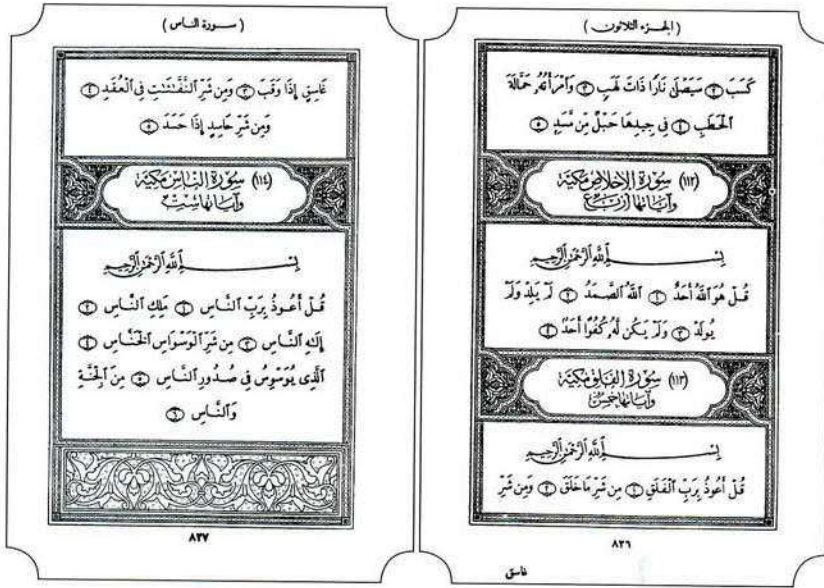 ( الجزء الثلاثون )
كَسَبَ ۝٢ سَيَصْلَىٰ نَارًا ذَاتَ لَهَبٍ ۝٣ وَٱمْرَأَتُهُۥ حَمَّالَةَ
ٱلْحَطَبِ ۝٤ فِى جِيدِهَا حَبْلٌ مِّن مَّسَدٍ ۝٥
(١١٢) سورة الإخلاص مكية
وآياتها أربع
بِسْمِ ٱللَّهِ ٱلرَّحْمَٰنِ ٱلرَّحِيمِ
قُلْ هُوَ ٱللَّهُ أَحَدٌ ۝١ ٱللَّهُ ٱلصَّمَدُ ۝٢ لَمْ يَلِدْ وَلَمْ
يُولَدْ ۝٣ وَلَمْ يَكُن لَّهُۥ كُفُوًا أَحَدٌ ۝٤
(١١٣) سورة الفلق مكية
وآياتها خمس
بِسْمِ ٱللَّهِ ٱلرَّحْمَٰنِ ٱلرَّحِيمِ
قُلْ أَعُوذُ بِرَبِّ ٱلْفَلَقِ ۝١ مِن شَرِّ مَا خَلَقَ ۝٢ وَمِن شَرِّ
٨٢٦
غاسق
( سورة الناس )
غَاسِقٍ إِذَا وَقَبَ ۝٣ وَمِن شَرِّ ٱلنَّفَّٰثَٰتِ فِى ٱلْعُقَدِ ۝٤
وَمِن شَرِّ حَاسِدٍ إِذَا حَسَدَ ۝٥
(١١٤) سورة الناس مكية
وآياتها ست
بِسْمِ ٱللَّهِ ٱلرَّحْمَٰنِ ٱلرَّحِيمِ
قُلْ أَعُوذُ بِرَبِّ ٱلنَّاسِ ۝١ مَلِكِ ٱلنَّاسِ ۝٢
إِلَٰهِ ٱلنَّاسِ ۝٣ مِن شَرِّ ٱلْوَسْوَاسِ ٱلْخَنَّاسِ ۝٤
ٱلَّذِى يُوَسْوِسُ فِى صُدُورِ ٱلنَّاسِ ۝٥ مِنَ ٱلْجِنَّةِ
وَٱلنَّاسِ ۝٦
٨٢٧